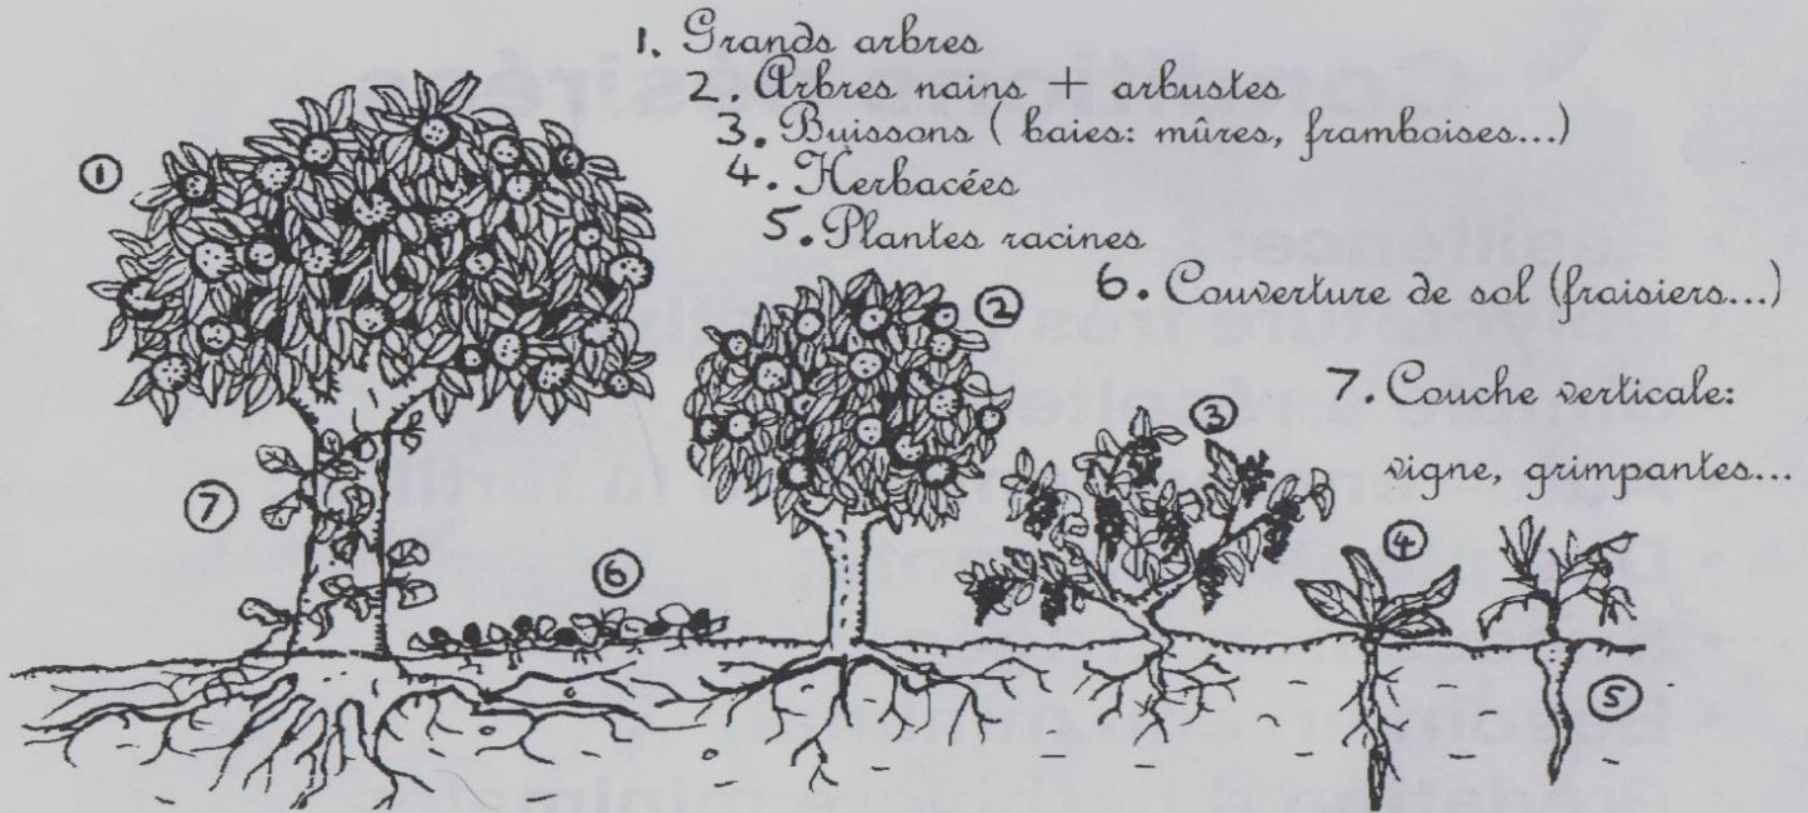 1. Grands arbres
2. Arbres nains + arbustes
3. Buissons ( baies: mûres, framboises...)
4. Herbacées
5. Plantes racines
6. Couverture de sol (fraisiers...)
7. Couche verticale:
vigne, grimpantes...
1
2
3
7
4
6
5